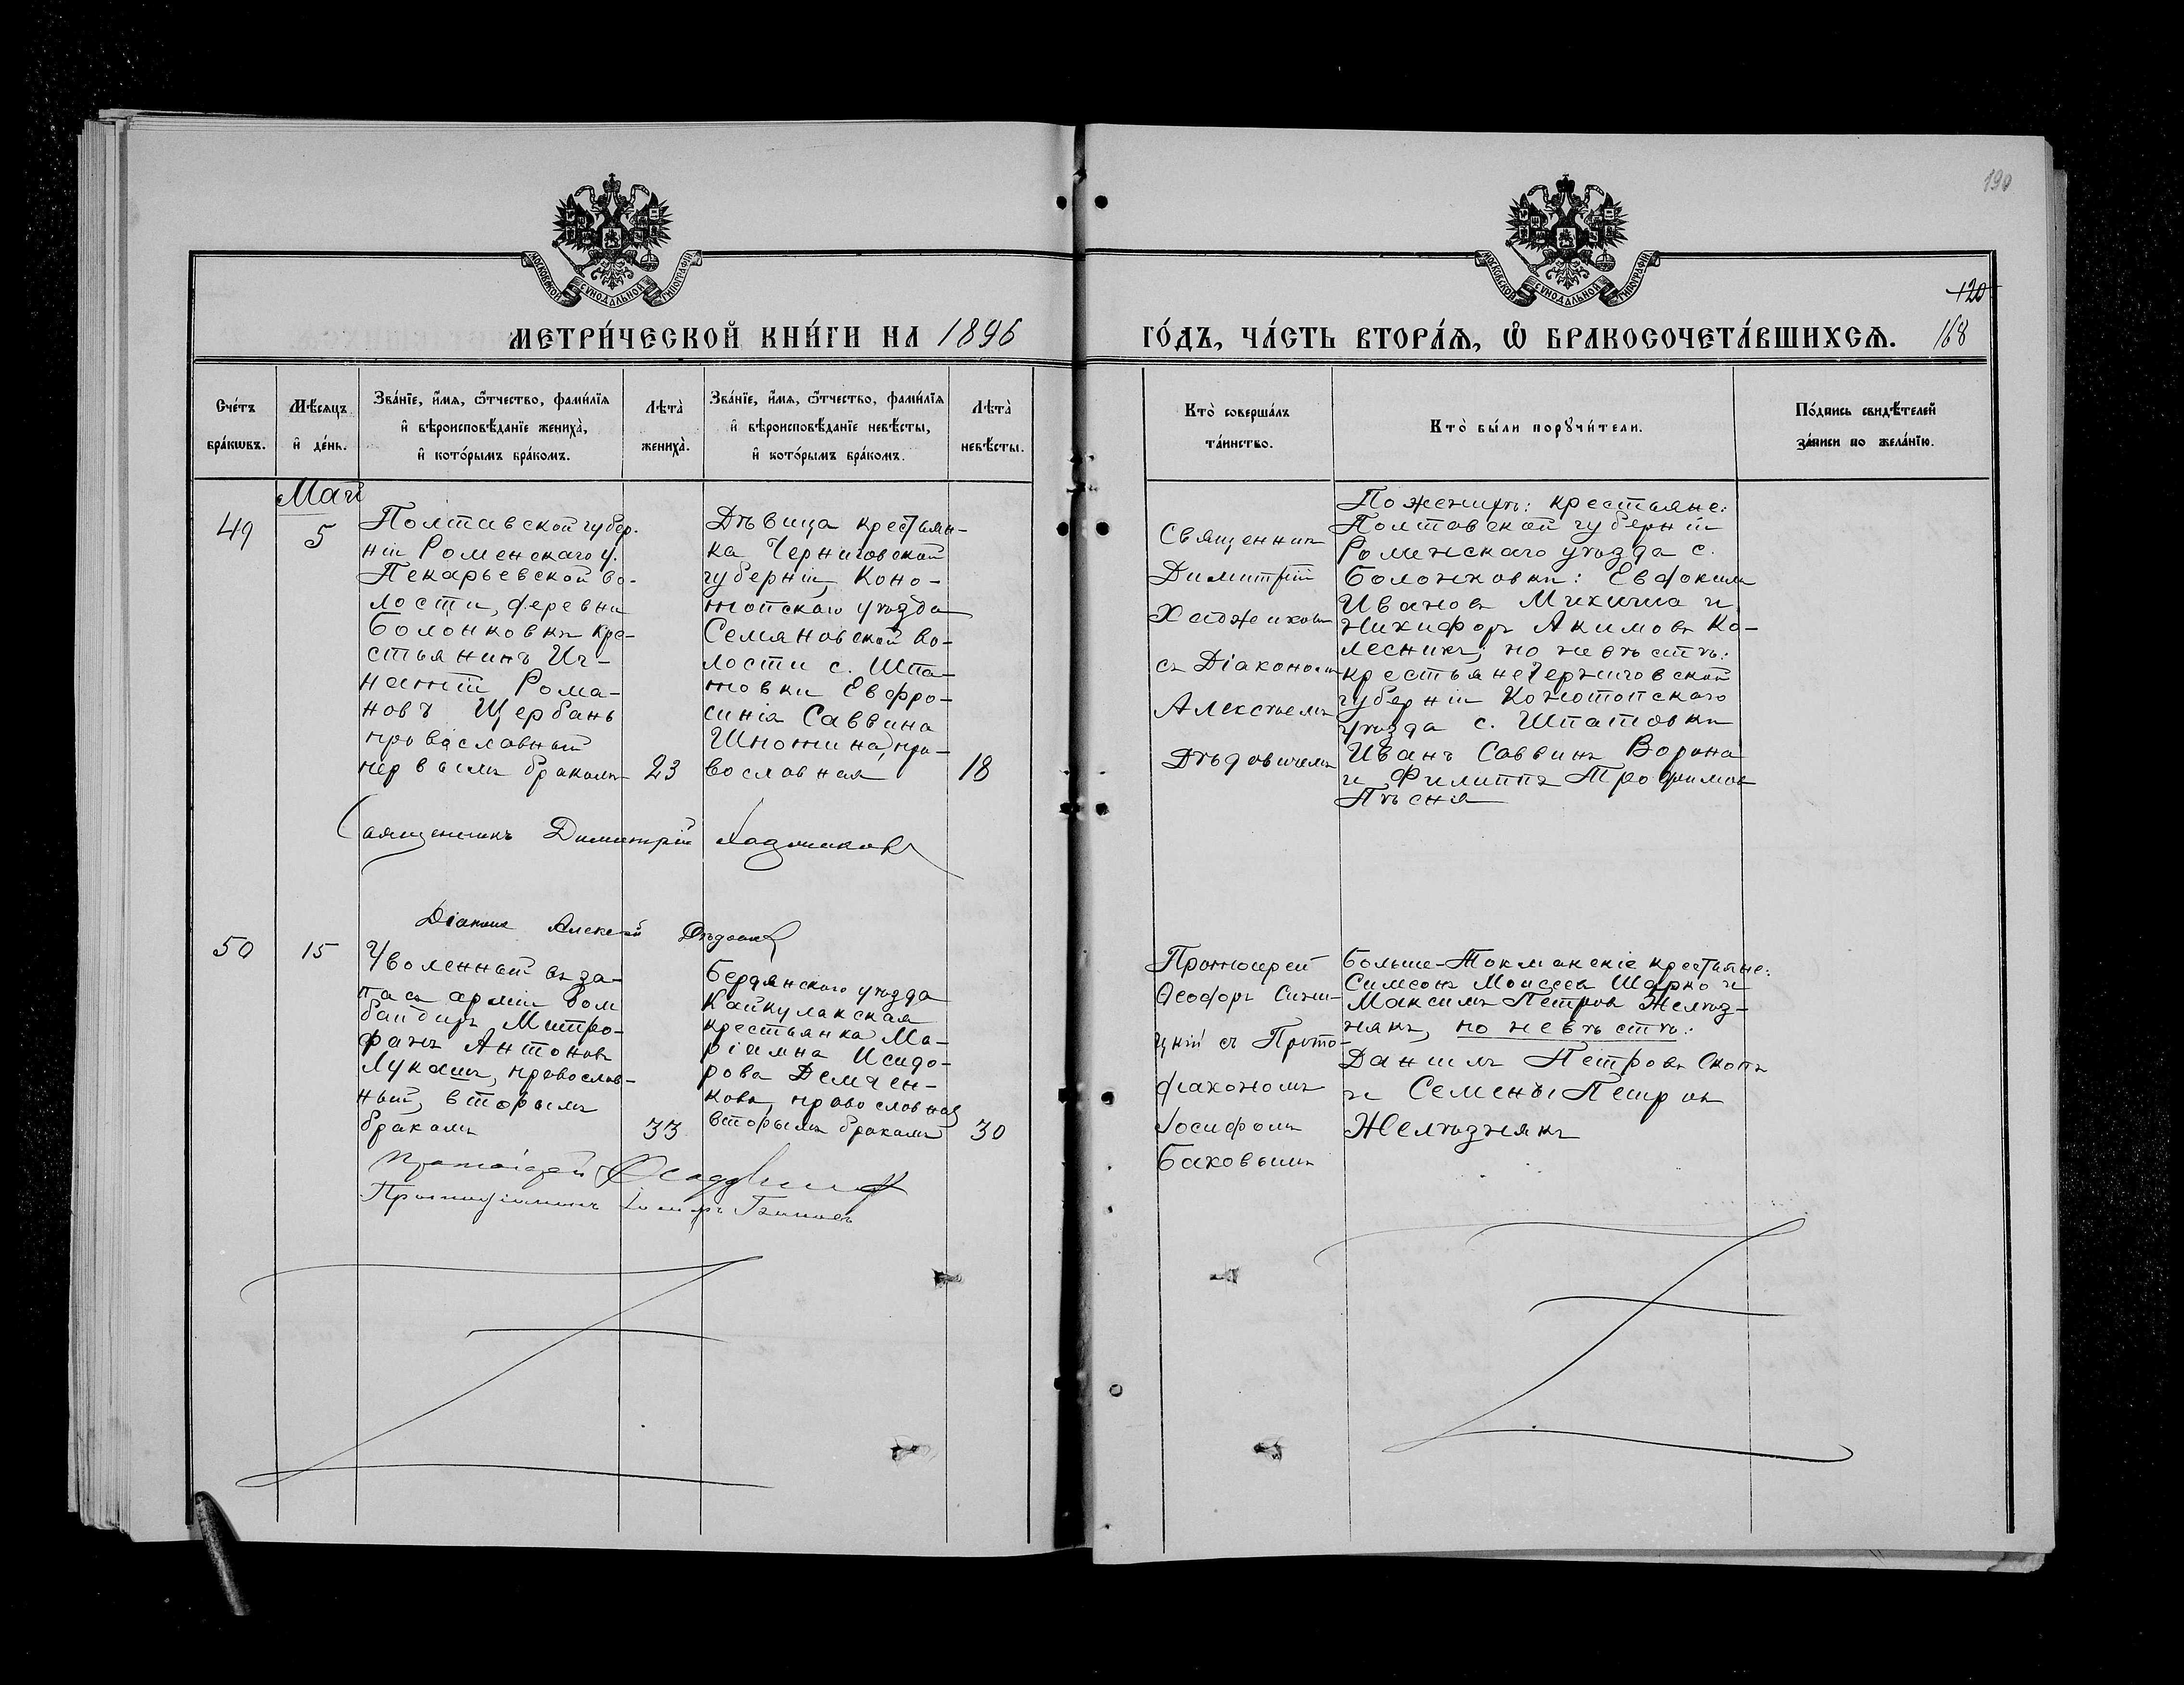 190
МОСКОВСКОЙ СѴНОДАЛЬНОЙ ТИПОГРАФІИ
МОСКОВСКОЙ СѴНОДАЛЬНОЙ ТИПОГРАФІИ
МЕТРИ́ЧЕСКОЙ КНИ́ГИ НА 1896
ГО́ДЪ, ЧА́СТЬ ВТОРА́Ѧ, Ѡ҆ БРАКОСОЧЕТА́ВШИХСѦ.
120
168
Сче́тъ
бра́кѡвъ.
Мѣ́сѧцъ
и҆ де́нь.
Зва́нїе, и҆́мѧ, ѻ҆́тчество, фами́лїѧ
и҆ вѣроисповѣ́данїе жениха̀,
и҆ кото́рымъ бра́комъ.
Лѣта̀
жениха̀.
Зва́нїе, и҆́мѧ, ѻ҆́тчество, фами́лїѧ
и҆ вѣроисповѣ́данїе невѣ́сты,
и҆ кото́рымъ бра́комъ.
Лѣта̀
невѣ́сты.
Кто̀ соверша́лъ
та́инство.
Кто̀ бы́ли порꙋчи́тели.
По́дпись свидѣ́телей
за́писи по жела́нїю.
Май
49
5
Полтавской губер-
ніи Роменскаго у.
Пекарьевской во-
лости, деревни
Болонковки кре-
стьянинъ Иг-
натій Рома-
новъ Щербань
православный
первымъ бракомъ
23
Дѣвица крестьян-
ка Черниговской
губерніи, Коно-
топскаго уѣзда
Семяновской во-
лости с. Шпа-
товки Евфро-
синія Саввина
пра-
вославная
18
Священникъ
Димитрій
съ Діакономъ
Алексѣемъ
Дѣдовичемъ
По женихѣ: крестьяне:
Полтавской губерніи
Роменскаго уѣзда с.
Болонковки: Евдокимъ
Ивановъ Микитка и
Никифоръ Акимовъ Ко-
лесникъ; по невѣстѣ:
крестьяне Черниговской
губерніи Конотопскаго
уѣзда с. Шпатовки
Иванъ Саввинъ Ворона
и Филиппъ Трофимовъ
Пѣсня
Священникъ Димитрій
Діаконъ Алексѣй
50
15
Уволенный въ за-
пасъ арміи бом
бандиръ Митро-
фанъ Антоновъ
Лукашъ, православ-
ный, вторымъ
бракомъ
33
Бердянскаго уѣзда
Кайкулакская
крестьянка Ма-
ріамна Исидо-
рова Демчен-
кова, православная
вторымъ бракомъ
30
Протоіерей
Ѳеодоръ Сини-
цкій съ Прото-
діакономъ
Іосифомъ
Баковымъ
Больше-Токмакскіе крестьяне:
Симеонъ Моисеевъ Шарко и
Максимъ Петровъ Желѣз-
някъ, по невѣстѣ:
Даниилъ Петровъ Скопъ
и Семенъ Петровъ
Желѣзнякъ
Протоіерей
Протодіаконъ Іосифъ